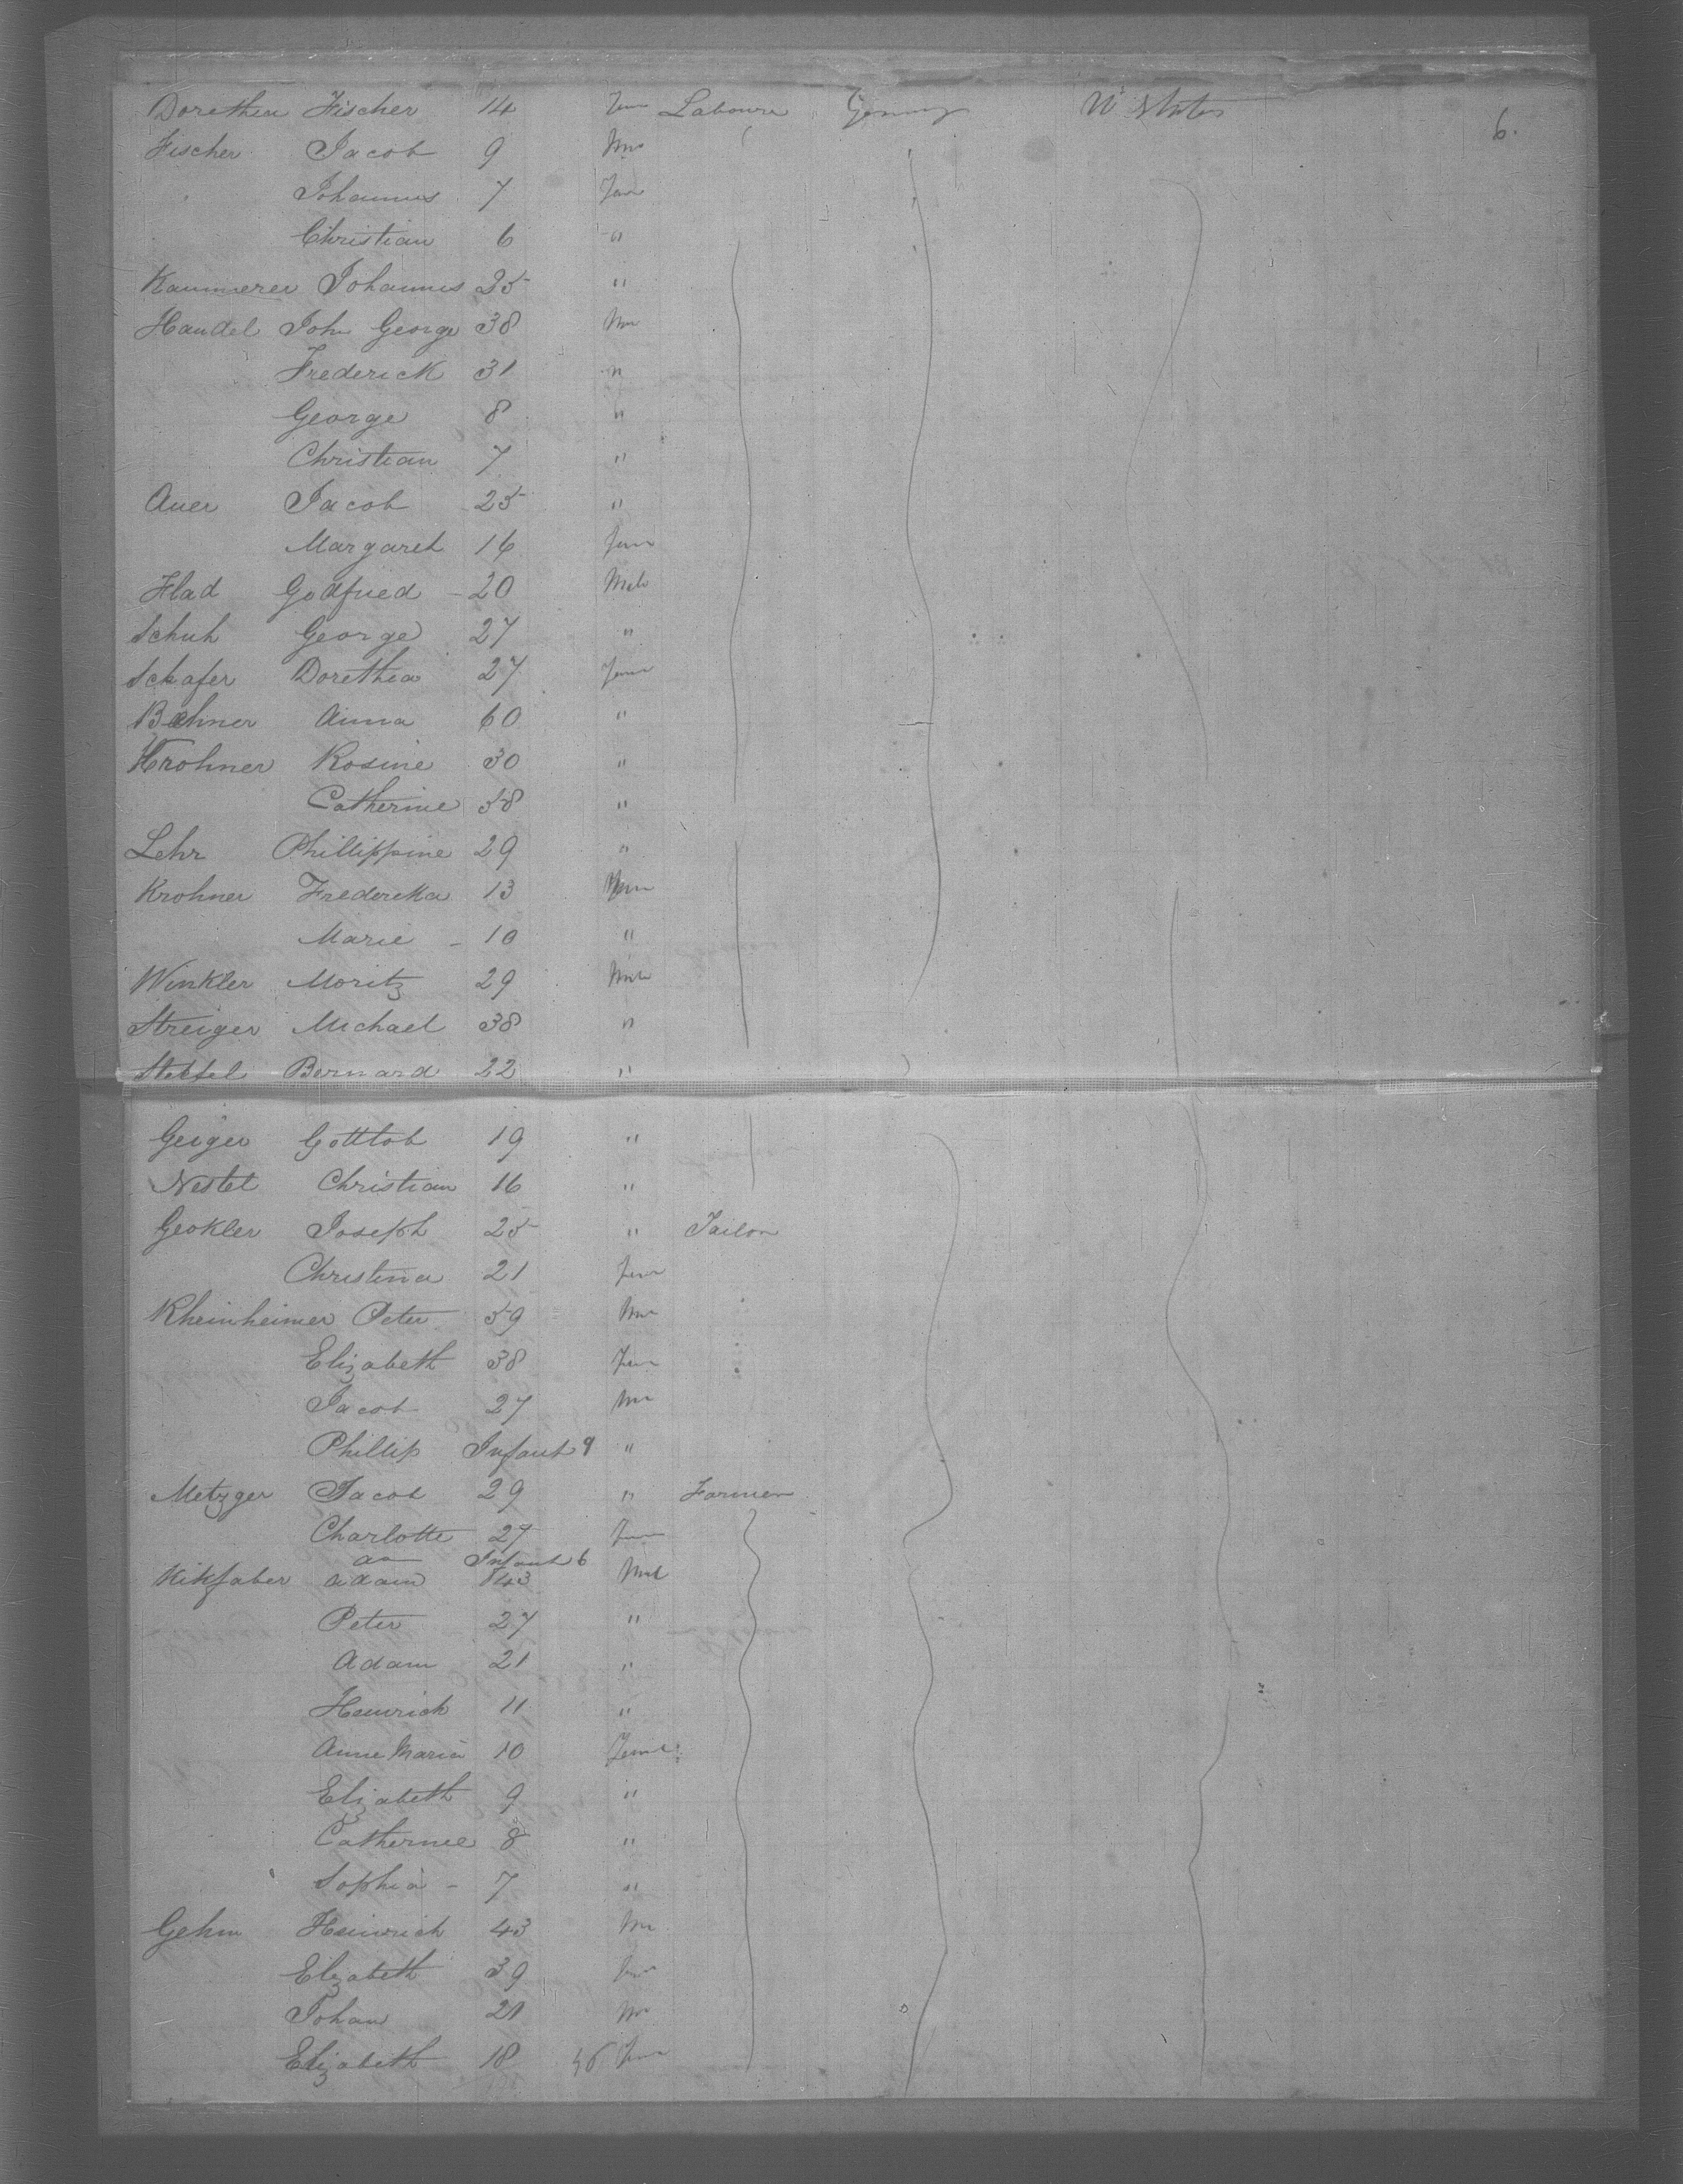 Dorethea Fischer 14 Fem Laboure Germny U States 6.
Fischer Jacob 9 Me
Johannes 7 Fem
Christian 6 "
Kammerer Johannes 25 "
Handel John George 38 Me
Frederick 31 "
George 8 "
Christian 7 "
Auer Jacob 25 "
Margaret 16 Fem
Flad Godfried - 20 Male
Schuh George 27 "
Schafer Dorethea 27 Fem
Bahner Anna 60 "
Krohner Rosine 30 "
Catherine 58 "
Lehr Phillippine 29 "
Krohner Fredericka 13 Fem
Marie - 10 "
Winkler Moritz 29 Male
Streiger Michael 38 "
Bernard 22 "
Geiger Gottlob 19 "
Nestel Christian 16 "
Geokler Joseph 25 " Tailor
Christina 21 Fem
Rheinheimer Peter 59 Me
Elizabeth 38 Fem
Jacob 27 Me
Phillip Infant 9 "
Metzger Jacob 29 " Farmer
Charlotte 27 Fem
Infant 6
Kikfaber Adam 43 Male
Peter 27 "
Adam 21 "
Heinrich 11 "
Anne Maria 10 Feml
Elizabeth 9 "
Catherine 8 "
Sophia - 7 "
Gehm Heinrich 43 Me
Elizabeth 39 Fem
Johan 21 Me
Elizabeth 18 46 Fem